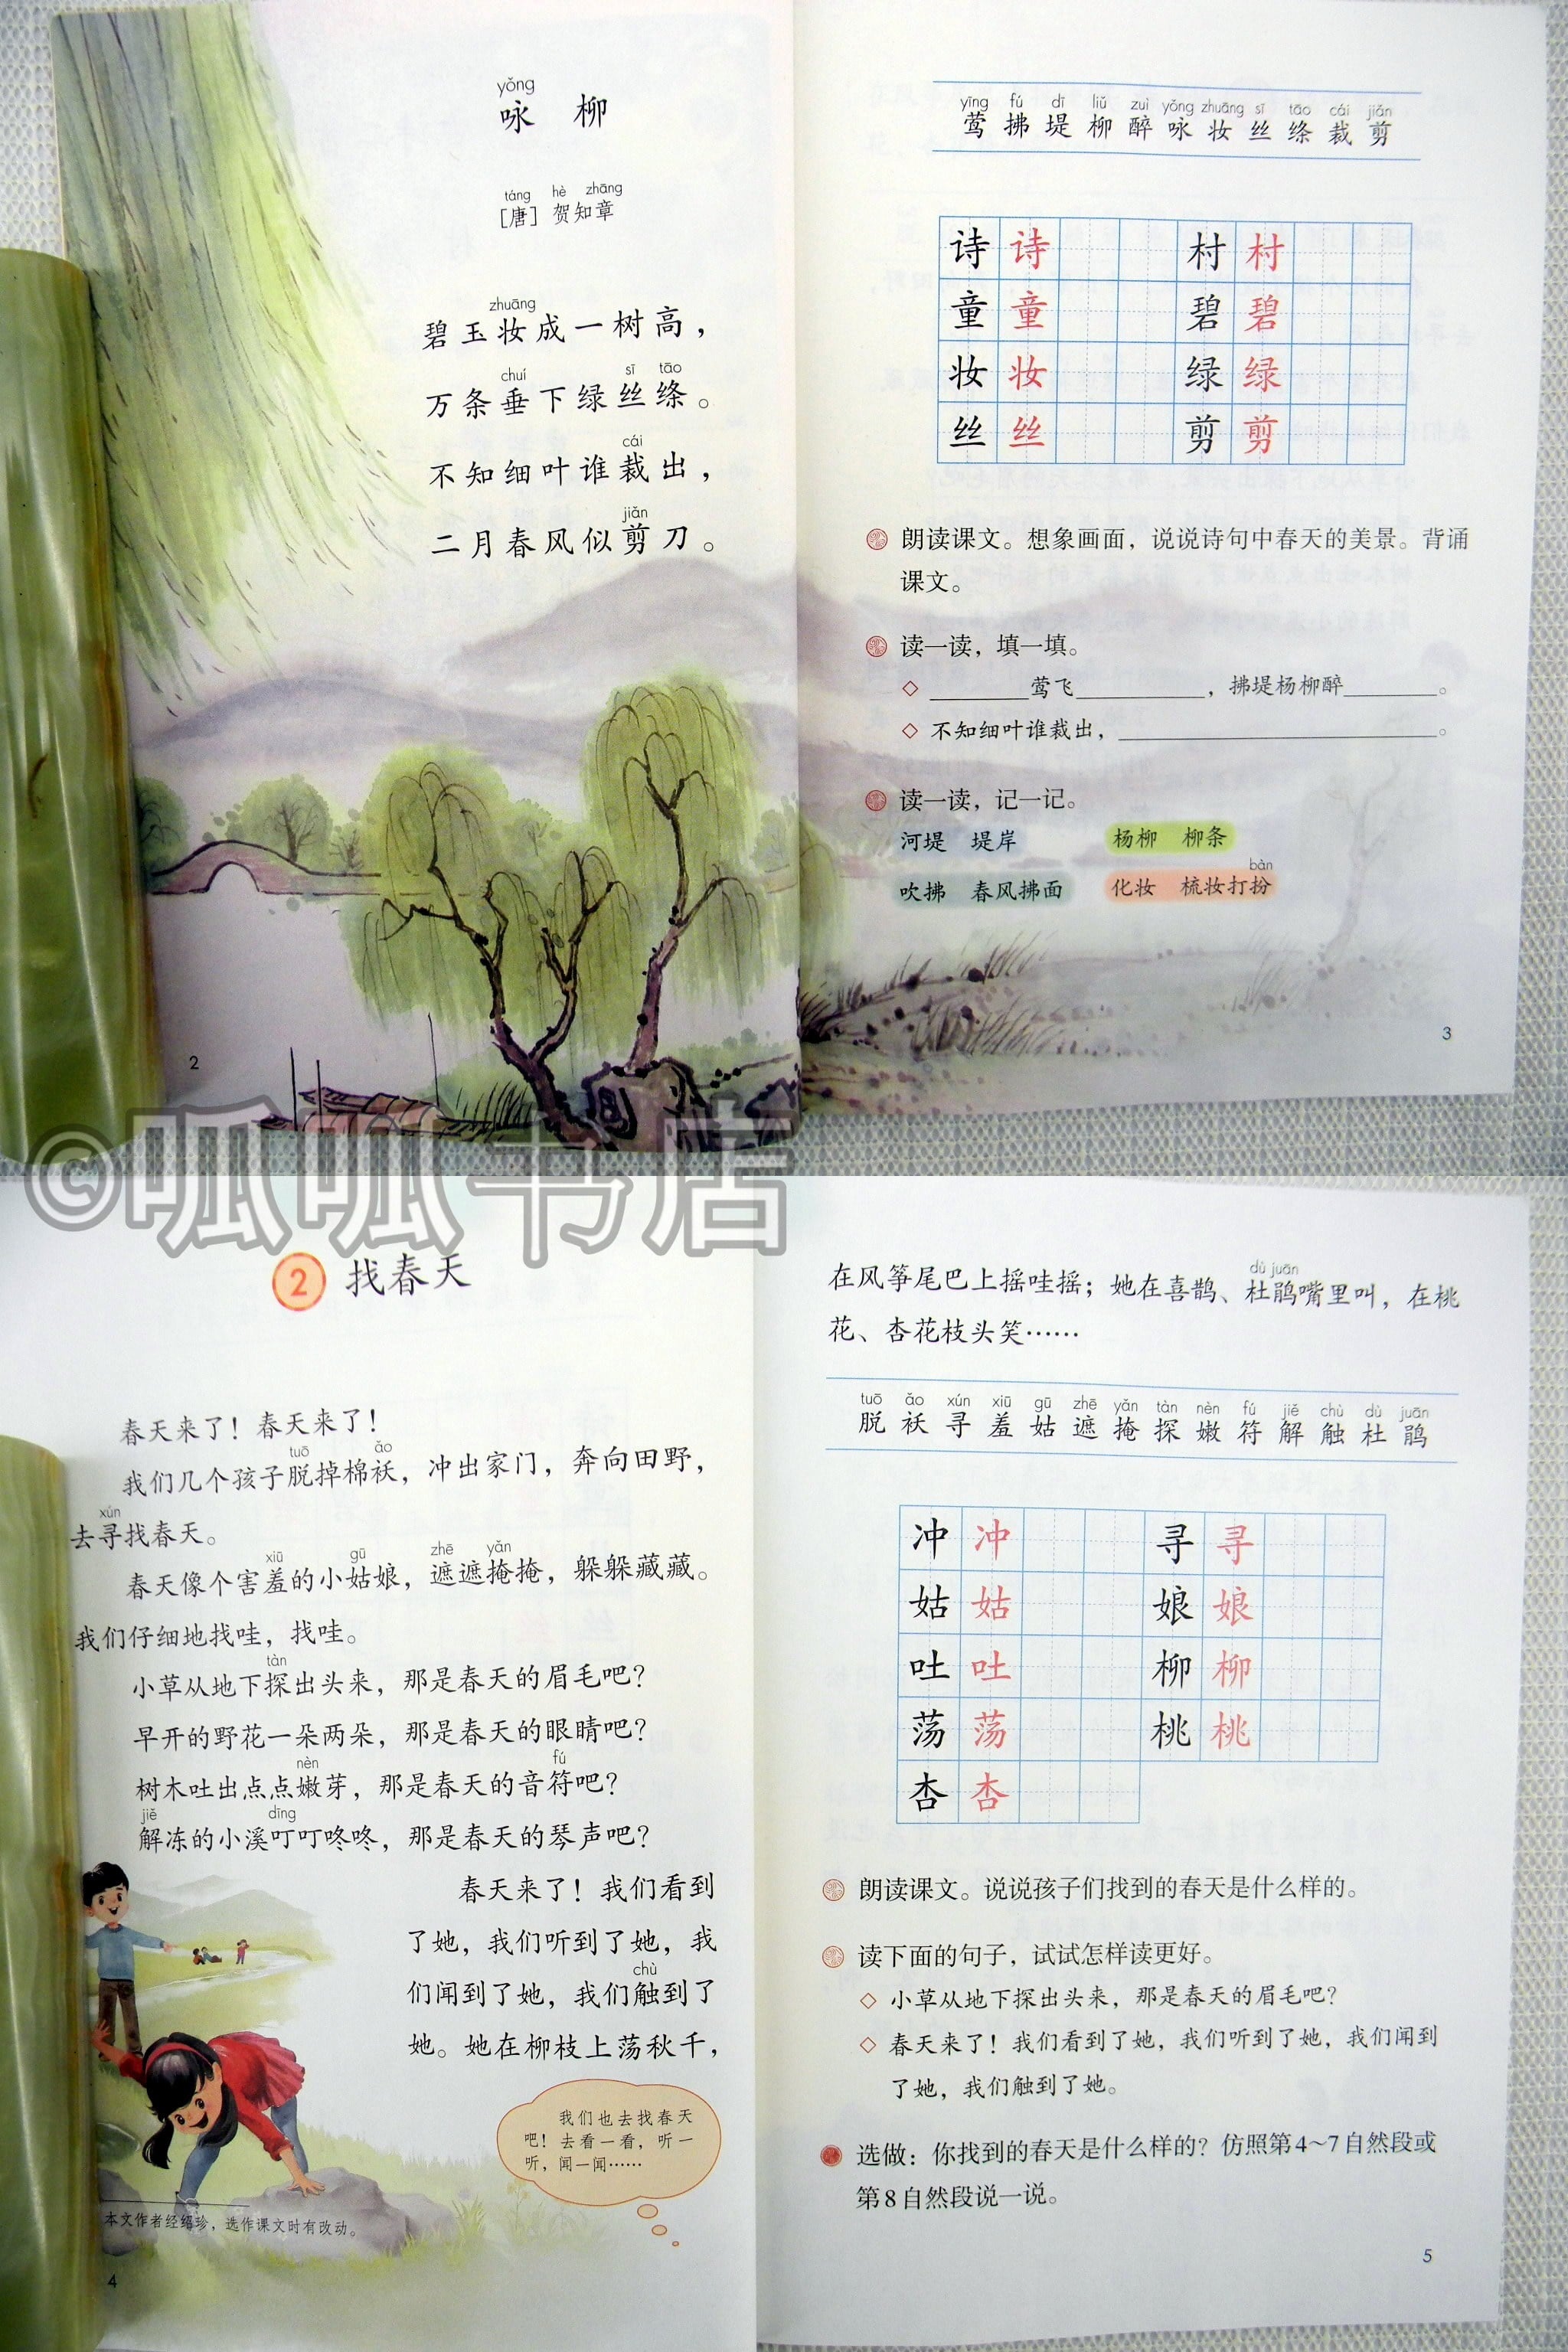 yǒng
咏 柳
táng hè zhāng
[唐] 贺知章
zhuāng
碧玉妆成一树高，
chuí sī tāo
万条垂下绿丝绦。
cái
不知细叶谁裁出，
jiǎn
二月春风似剪刀。
2
yīng fú dī liǔ zuì yǒng zhuāng sī tāo cái jiǎn
莺 拂 堤 柳 醉 咏 妆 丝 绦 裁 剪
诗 诗 村 村
童 童 碧 碧
妆 妆 绿 绿
丝 丝 剪 剪
朗读课文。想象画面，说说诗句中春天的美景。背诵
课文。
读一读，填一填。
◇ ________莺飞________，拂堤杨柳醉________。
◇ 不知细叶谁裁出，________________。
读一读，记一记。
河堤 堤岸 杨柳 柳条
bàn
吹拂 春风拂面 化妆 梳妆打扮
3
©呱呱书店
2 找春天
春天来了！春天来了！
tuō ǎo
我们几个孩子脱掉棉袄，冲出家门，奔向田野，
xún
去寻找春天。
xiū gū zhē yǎn
春天像个害羞的小姑娘，遮遮掩掩，躲躲藏藏。
我们仔细地找哇，找哇。
tàn
小草从地下探出头来，那是春天的眉毛吧？
早开的野花一朵两朵，那是春天的眼睛吧？
nèn fú
树木吐出点点嫩芽，那是春天的音符吧？
jiě dīng
解冻的小溪叮叮咚咚，那是春天的琴声吧？
春天来了！我们看到
了她，我们听到了她，我
chù
们闻到了她，我们触到了
她。她在柳枝上荡秋千，
我们也去找春天
吧！去看一看，听一
听，闻一闻……
本文作者经绍珍，选作课文时有改动。
4
dù juān
在风筝尾巴上摇哇摇；她在喜鹊、杜鹃嘴里叫，在桃
花、杏花枝头笑……
tuō ǎo xún xiū gū zhē yǎn tàn nèn fú jiě chù dù juān
脱 袄 寻 羞 姑 遮 掩 探 嫩 符 解 触 杜 鹃
冲 冲 寻 寻
姑 姑 娘 娘
吐 吐 柳 柳
荡 荡 桃 桃
杏 杏
朗读课文。说说孩子们找到的春天是什么样的。
读下面的句子，试试怎样读更好。
◇ 小草从地下探出头来，那是春天的眉毛吧？
◇ 春天来了！我们看到了她，我们听到了她，我们闻到
了她，我们触到了她。
选做：你找到的春天是什么样的？仿照第4～7自然段或
第8自然段说一说。
5